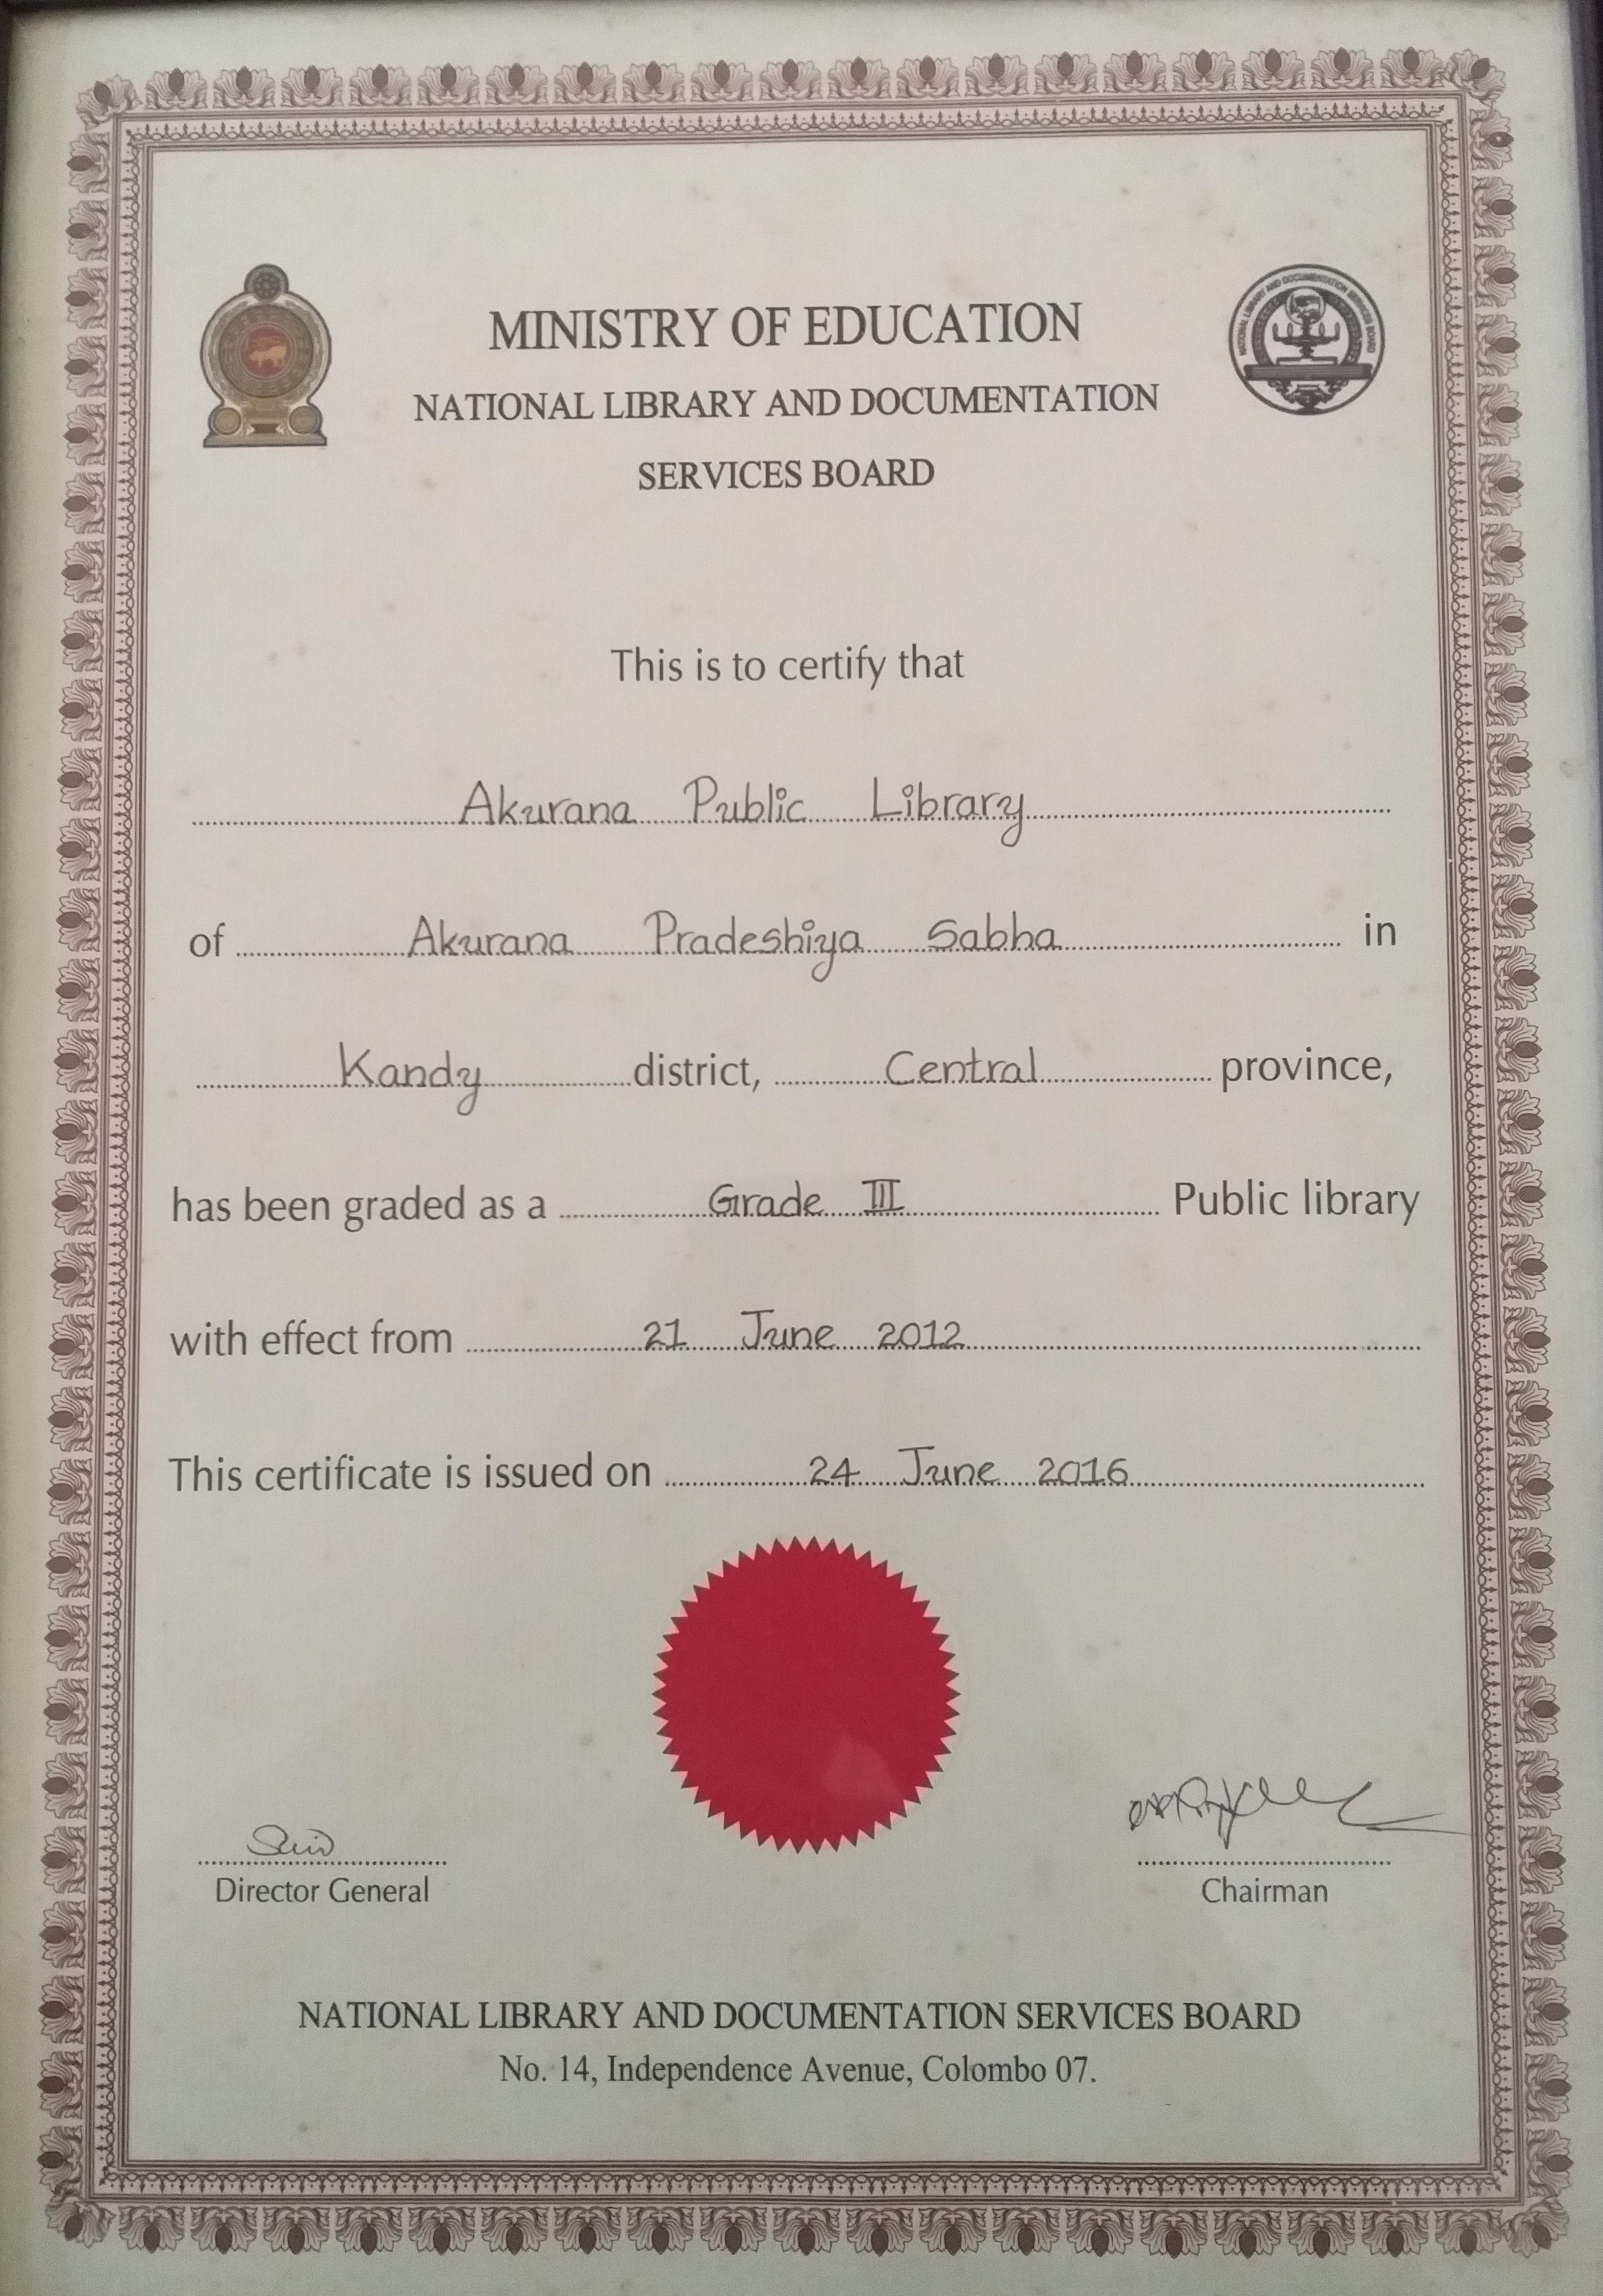 MINISTRY OF EDUCATION
NATIONAL LIBRARY AND DOCUMENTATION
SERVICES BOARD
NATIONAL LIBRARY AND DOCUMENTATION SERVICES BOARD
This is to certify that
Akurana Public Library
of Akurana Pradeshiya Sabha in
Kandy district, Central province,
has been graded as a Grade III Public library
with effect from 21 June 2012
This certificate is issued on 24 June 2016
Director General
Chairman
NATIONAL LIBRARY AND DOCUMENTATION SERVICES BOARD
No. 14, Independence Avenue, Colombo 07.